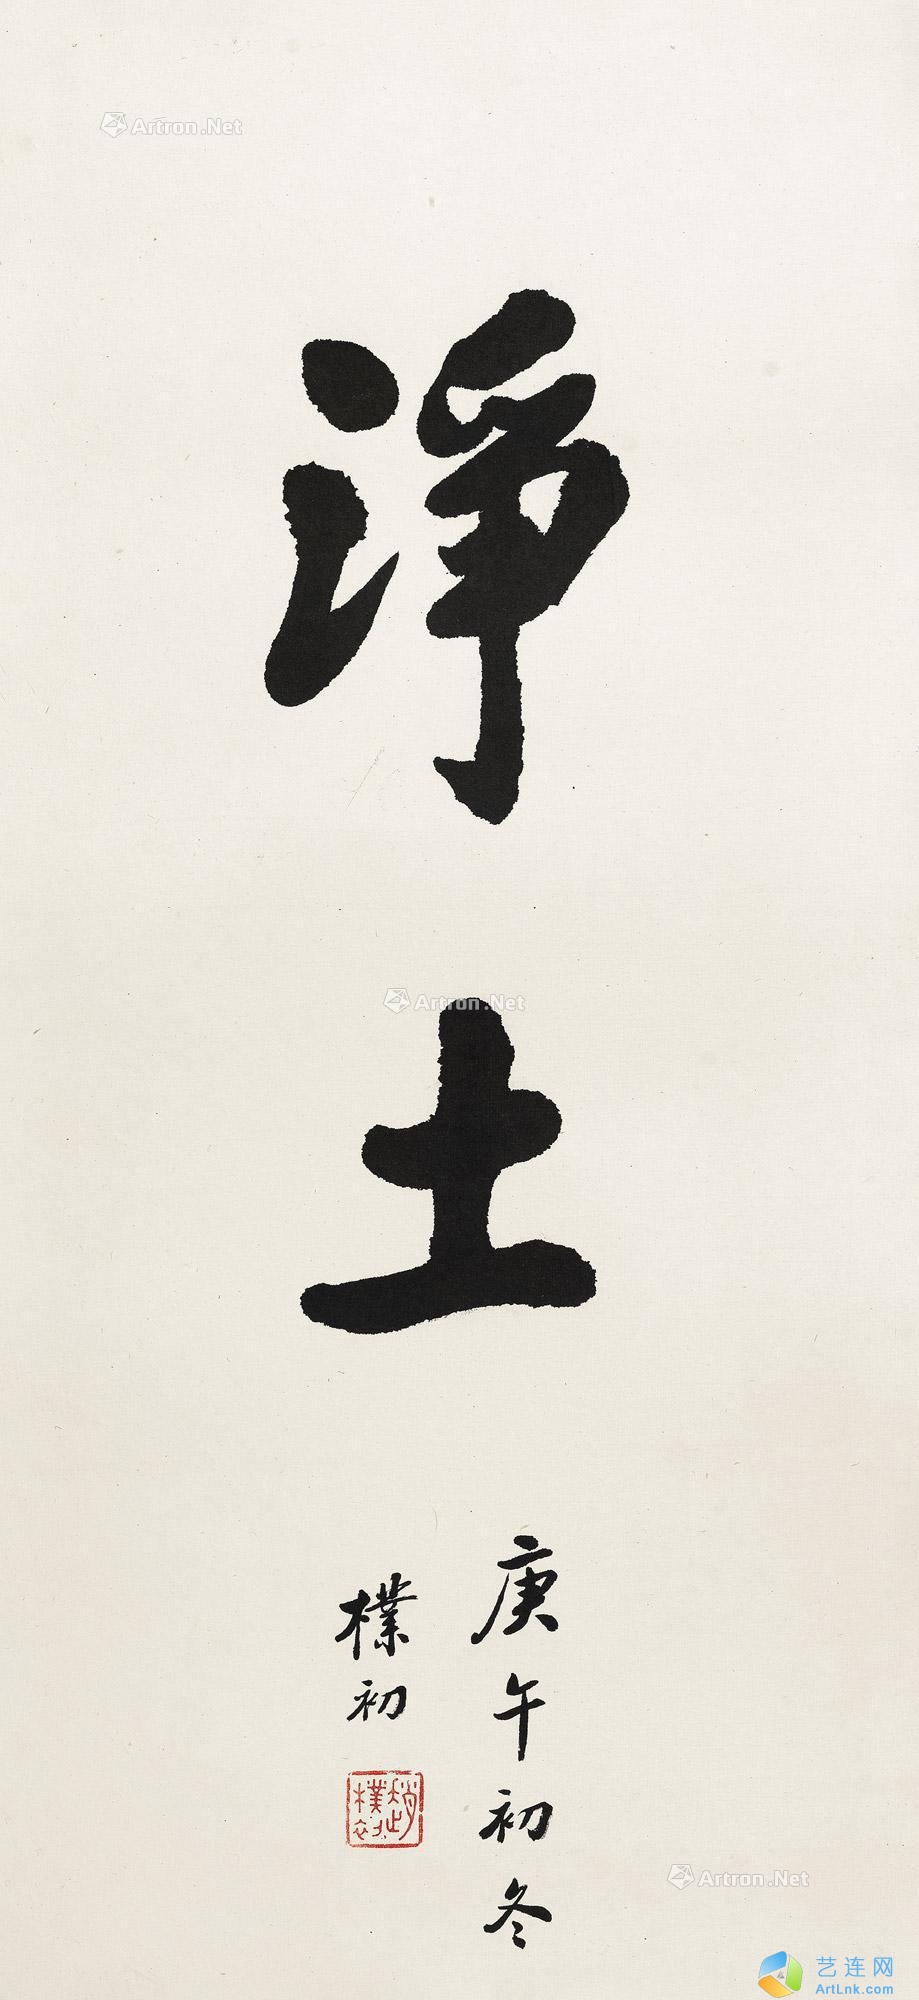 淨
土
庚午初冬
樸初
趙樸初
Artron.Net
Artron.Net
Artron.Net
艺连网
ArtLnk.com